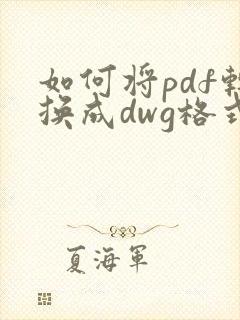 如何将pdf转
换成dwg格式
夏海军